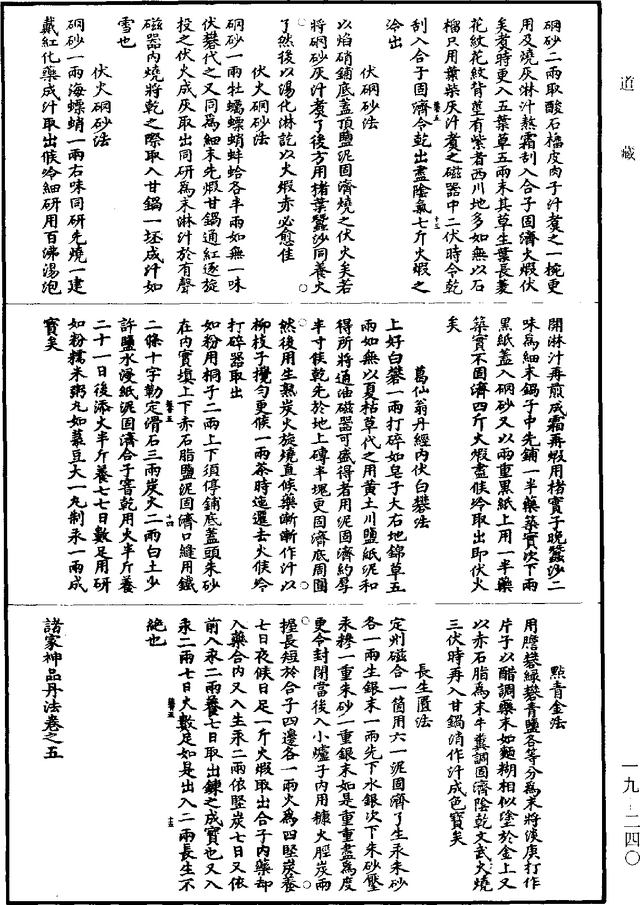 道藏
硇砂二兩取酸石榴皮肉子汁煑之一椀更
用及燒灰淋汁熬霜刮入合子固濟火煅伏
矣煑時更入五葉草五兩末其草生葉長蔓
花紋花紋背莖有紫者西川地多如無以石
榴只用葉柴灰汁煑之磁器中二伏時令乾
刮入合子固濟令乾出盡陰氣七斤火煅之
冷出
伏硇砂法
以焰硝鋪底蓋頂鹽泥固濟燒之伏火矣若
將硇砂灰汁煑了後方用猪葉蠶沙同養火
了然後以湯化淋訖以火煅赤必愈佳
伏火硇砂法
硇砂一兩牡蠣螵蛸蚌蛤各半兩如無一味
伏礬代之又同爲細末先煅甘鍋通紅逐旋
投之伏火成灰取出同研爲末淋汁於有聲
磁器內燒將乾之際取入甘鍋一坯成汁如
雪也
伏火硇砂法
硇砂一兩海螵蛸一兩右味同研先燒一建
戴紅化藥成汁取出候冷細研用百沸湯泡
開淋汁再煎成霜再煅用楮實子晚蠶沙二
味爲細末鍋子中先鋪一半藥築實次下兩
黑紙蓋入硇砂又以兩重黑紙上用一半藥
築實不固濟四斤火煅盡候冷取出即伏火
矣
葛仙翁丹經內伏白礬法
上好白礬一兩打碎如皂子大右地錦草五
兩如無以夏枯草代之用黃土川鹽紙泥和
得所將通油磁器可盛得者用泥固濟約厚
半寸候乾先於地上磚半塊更固濟底周圍
然後用生熟炭火旋燒直候藥漸漸作汁以
柳枝子攪勻更候一兩茶時迤邐去火候冷
打碎器取出
如粉用桐子二兩上下須停鋪底蓋頭朱砂
在內實填上下赤石脂鹽泥固濟口縫用鐵
二條十字勒定滑石三兩炭火二兩白土少
許鹽水浸紙泥固濟合子害乾用火半斤養
二十一日後添火半斤養七七日數足用研
如粉糯米粥丸如菉豆大一丸制汞一兩成
寶矣
點青金法
用膽礬綠礬青鹽各等分爲末將淡庚打作
片子以醋調藥末如麵糊相似塗於金上又
以赤石脂爲末牛糞調固濟陰乾文武火燒
三伏時再入甘鍋消作汁成色寶矣
長生匱法
定州磁合一箇用六一泥固濟了生汞朱砂
各一兩生銀末一兩先下水銀次下朱砂壓
汞糝一重朱砂一重銀末如是重重盡爲度
更令封閉當後入小爐子內用糠火脛炭兩
挺長短於合子四邊各一兩火爲四堅炭養
七日夜候日足一斤火煅取出合子內藥却
入藥合內又入生汞二兩依堅炭七日又依
前入汞二兩養七日取出鍊之成寶也又入
汞二兩七日火數足如是出入二兩長生不
絕也
諸家神品丹法卷之五
一九—二四〇